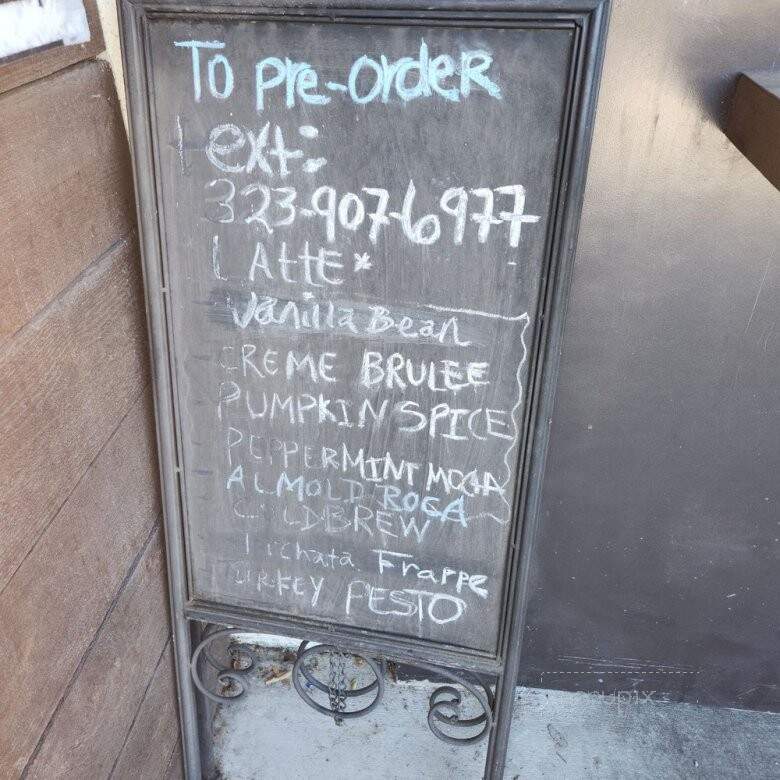 To Pre-order
text:
323-907-6977
LAttE*
Vanilla Bean
CREME BRULEE
PUMPKIN SPICE
PEPPERMINT MOCA
ALMOLD ROCA
COLDBREW
Frappe
TURKEY PESTO